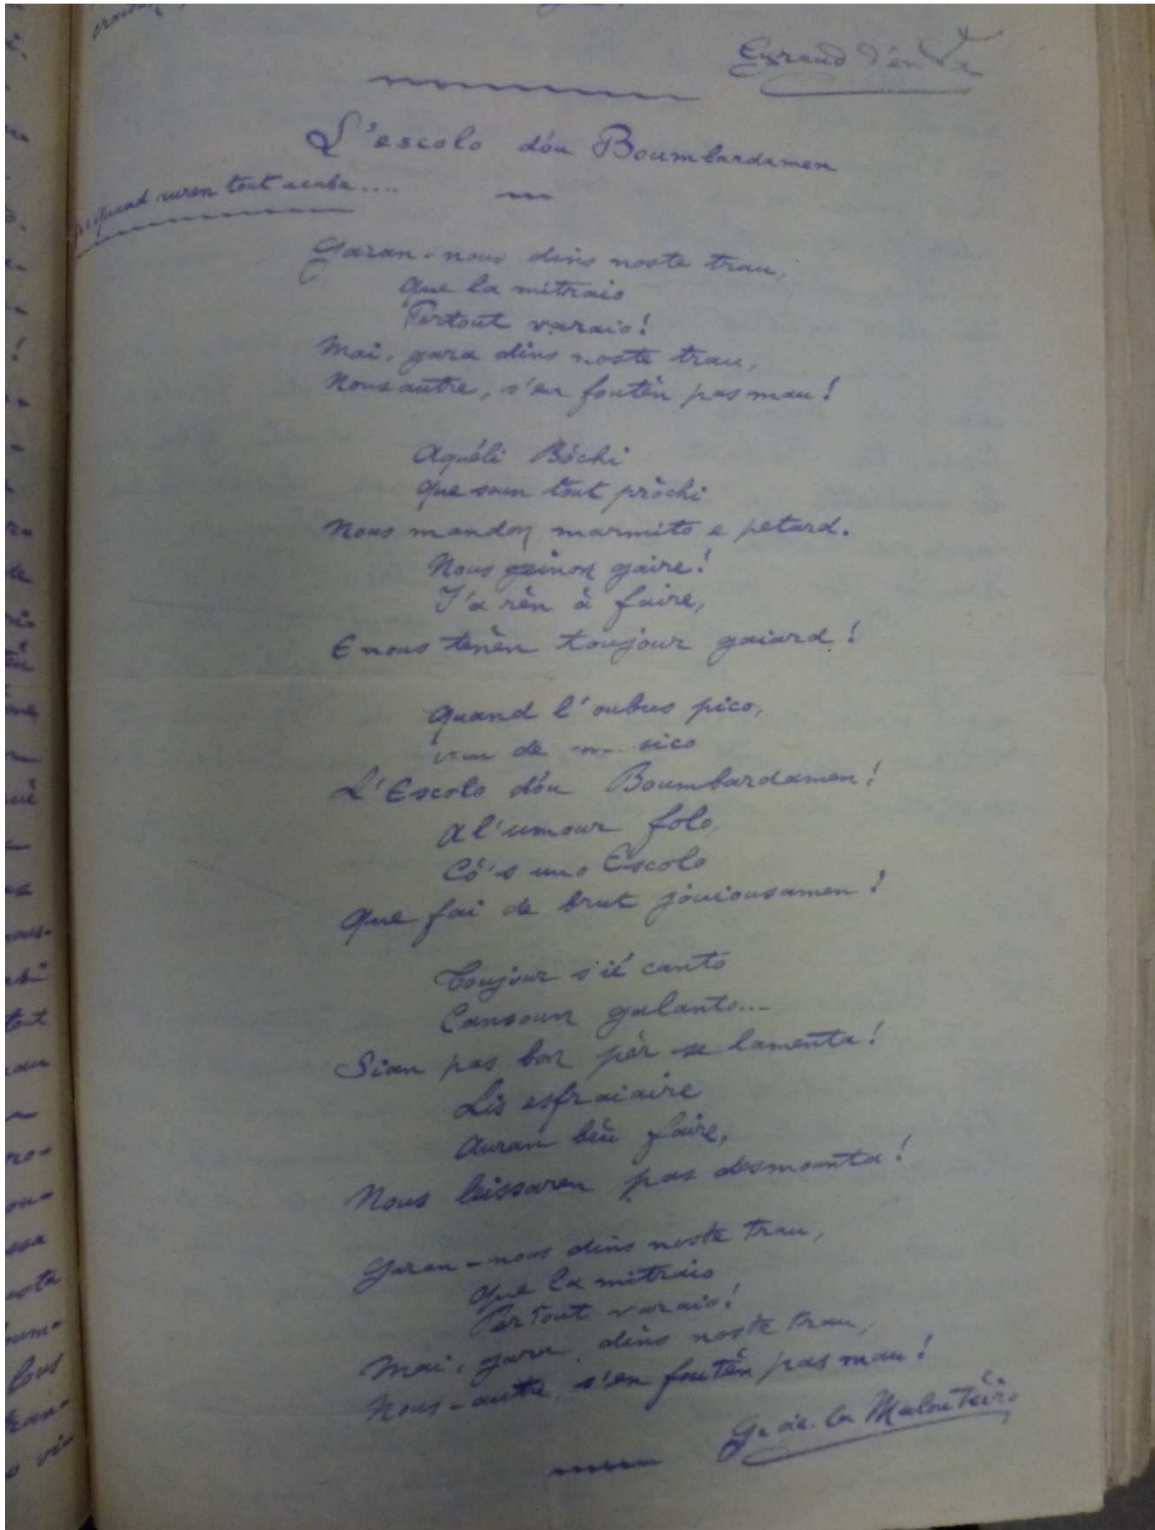 Eyraud d'en
L'escolo dóu Boumbardamen
quand auren tout acaba....
Garan-nous dins noste trau,
Que la mitraio
Pertout varaio!
Mai, gara dins noste trau,
Nous autre, s'en foutèn pas mau!
Aquéli Bòchi
Que soun tout pròchi
Nous mandon marmito e petard.
Nous geinon gaire!
I'a rèn à faire,
E nous tenèn toujour gaiard!
Quand l'oubus pico,
de
L'Escolo dóu Boumbardamen!
A l'umour folo,
Co's uno Escolo
Que fai de brut jouiousamen!
Toujour s'ié canto
Cansoun galanto...
Sian pas bon pèr se lamenta!
Lis esfraiaire
Auran bèu faire,
Nous leissaren pas desmounta!
Garan-nous dins noste trau,
Que la mitraio
Pertout varaio!
Mai, gara dins noste trau,
Nous-autre, s'en foutèn pas mau!
G. de la Malautèiro